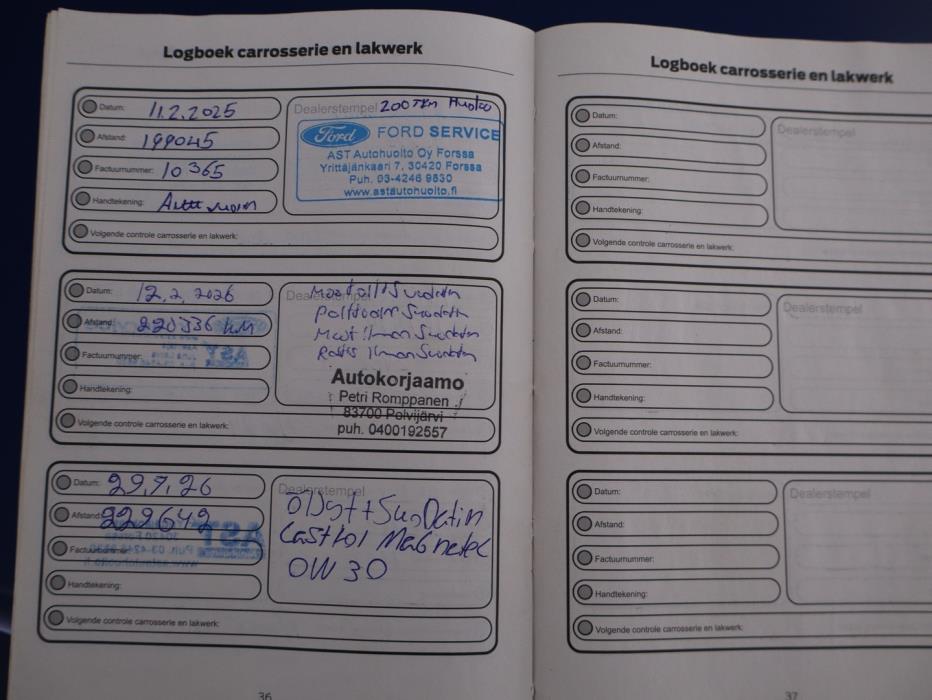 Logboek carrosserie en lakwerk
Datum: 11.2.2025
Afstand: 199045
Factuurnummer: 10365
Handtekening:
Volgende controle carrosserie en lakwerk:
Dealerstempel 200TKm Huolto
Ford FORD SERVICE
AST Autohuolto Oy Forssa
Yrittäjänkaari 7, 30420 Forssa
Puh. 03-4246 9530
www.astautohuolto.fi
Datum: 12.2.2026
Afstand: 220536 KM
Factuurnummer:
Handtekening:
Volgende controle carrosserie en lakwerk:
Moottoriöljy Suodatin
Polttoain Suodatin
Ilman Suodatin
Raitis Ilman Suodatin
Autokorjaamo
Petri Romppanen
83700 Polvijärvi
puh. 0400192557
Datum: 29.7.26
Afstand: 229642
Factuurnummer:
Handtekening:
Volgende controle carrosserie en lakwerk:
Dealerstempel
öljyt + Suodatin
Castrol Magnatec
0W30
36
Logboek carrosserie en lakwerk
Datum:
Afstand:
Factuurnummer:
Handtekening:
Volgende controle carrosserie en lakwerk:
Dealerstempel
Datum:
Afstand:
Factuurnummer:
Handtekening:
Volgende controle carrosserie en lakwerk:
Dealerstempel
Datum:
Afstand:
Factuurnummer:
Handtekening:
Volgende controle carrosserie en lakwerk:
Dealerstempel
37